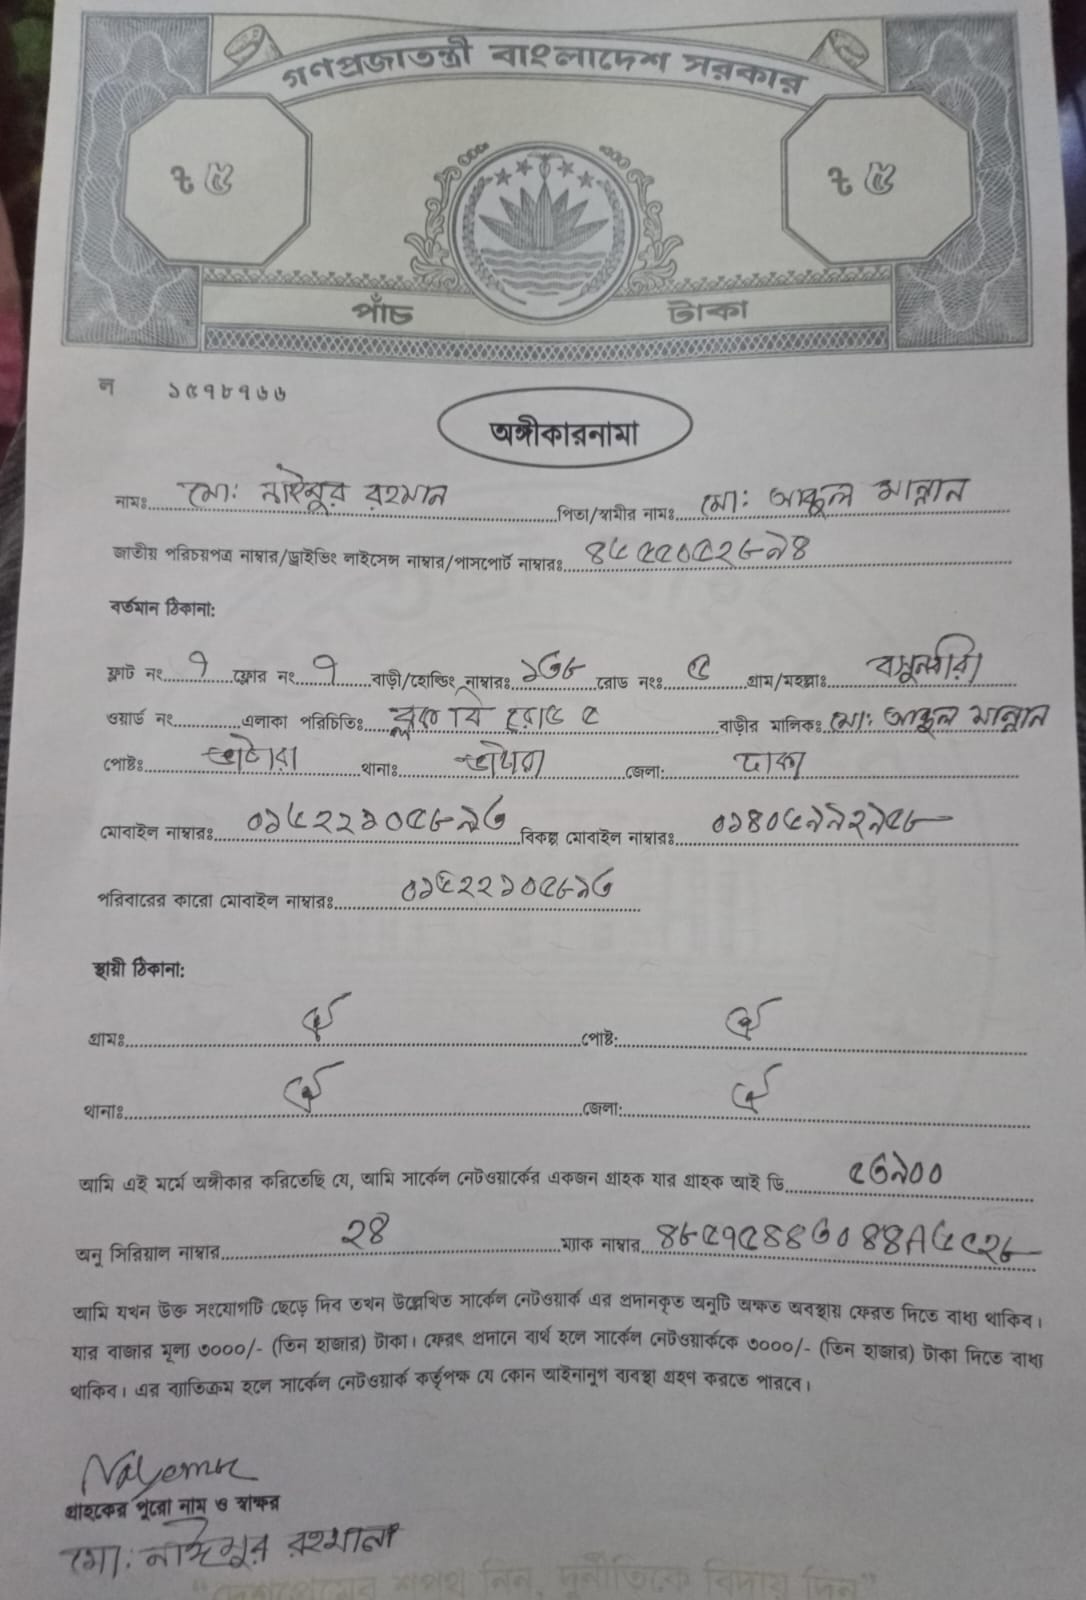 গণপ্রজাতন্ত্রী বাংলাদেশ সরকার
৳ ৫ ৳ ৫
পাঁচ টাকা
ল ১৫৭৮৭৬৬
অঙ্গীকারনামা
নামঃ মো: নাইমুর রহমান পিতা/স্বামীর নামঃ মো: আব্দুল মান্নান
জাতীয় পরিচয়পত্র নাম্বার/ড্রাইভিং লাইসেন্স নাম্বার/পাসপোর্ট নাম্বারঃ
বর্তমান ঠিকানা:
ফ্লাট নং ৭ ফ্লোর নং ৭ বাড়ী/হোল্ডিং নাম্বারঃ ১৩৮ রোড নং ৫ গ্রাম/মহল্লাঃ
ওয়ার্ড নং এলাকা পরিচিতিঃ ব্লক বি রোড ৫ বাড়ীর মালিকঃ মো: আব্দুল মান্নান
পোষ্টঃ ভাটারা থানাঃ ভাটারা জেলা: ঢাকা
মোবাইল নাম্বারঃ ০১৫২২১০৫৮৯৩ বিকল্প মোবাইল নাম্বারঃ
পরিবারের কারো মোবাইল নাম্বারঃ ০১৫২২১০৫৮৯৩
স্থায়ী ঠিকানা:
গ্রামঃ ঐ পোষ্ট: ঐ
থানাঃ ঐ জেলা: ঐ
আমি এই মর্মে অঙ্গীকার করিতেছি যে, আমি সার্কেল নেটওয়ার্কের একজন গ্রাহক যার গ্রাহক আই ডি ৫৩৯০০
অনু সিরিয়াল নাম্বার ২৪ ম্যাক নাম্বার
আমি যখন উক্ত সংযোগটি ছেড়ে দিব তখন উল্লেখিত সার্কেল নেটওয়ার্ক এর প্রদানকৃত অনুটি অক্ষত অবস্থায় ফেরত দিতে বাধ্য থাকিব।
যার বাজার মূল্য ৩০০০/- (তিন হাজার) টাকা। ফেরৎ প্রদানে ব্যর্থ হলে সার্কেল নেটওয়ার্ককে ৩০০০/- (তিন হাজার) টাকা দিতে বাধ্য
থাকিব। এর ব্যতিক্রম হলে সার্কেল নেটওয়ার্ক কর্তৃপক্ষ যে কোন আইনানুগ ব্যবস্থা গ্রহণ করতে পারবে।
গ্রাহকের পুরো নাম ও স্বাক্ষর
মো: নাঈমুর রহমান
“দেশপ্রেমের শপথ নিন, দুর্নীতিকে বিদায় দিন”